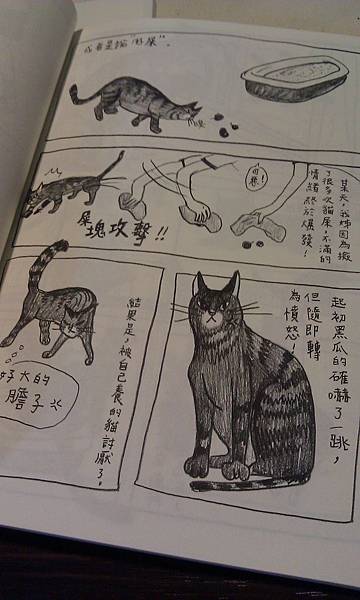 或者是貓
某天，我姊因為撿
了很多次貓屎，不滿的
情緒終於爆發！
可惡！
屎塊攻擊!!
起初黑瓜的確嚇了一跳，
但隨即轉
為憤怒！
結果是，被自己養的貓討厭了。
好大的
膽子